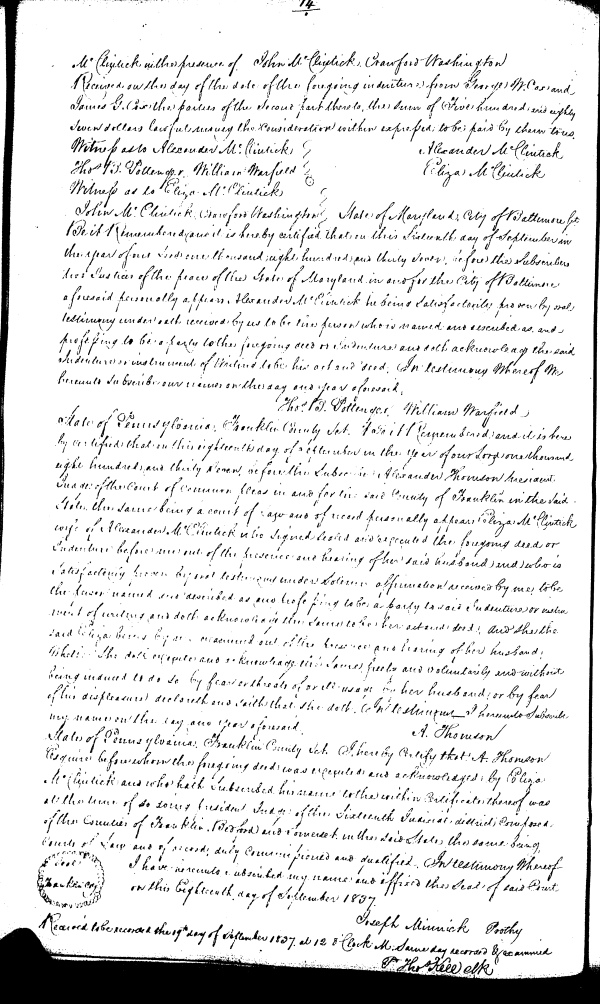 14
McClintick in the presence of John McClintick, Crawford Washington
Received on the day of the date of the foregoing indenture from George W. Cox and
James G. Cox the parties of the second part thereto, the sum of Five hundred and eighty
Seven dollars lawful money the consideration within expressed to be paid by them to us
Witness as to Alexander McClintick Alexander McClintick
Thos. B. Pottenger, William Warfield Eliza McClintick
Witness as to Eliza McClintick
John McClintick, Crawford Washington State of Maryland, City of Baltimore Sct
Be it Remembered and it is hereby certified that on this Sixteenth day of September in
the year of our Lord one thousand eight hundred and thirty Seven, before the Subscribers
two Justices of the peace of the State of Maryland in and for the City of Baltimore
aforesaid personally appears Alexander McClintick he being Satisfactorily proven by oral
testimony under oath received by us to be the person who is named and described as, and
professing to be a party to the foregoing deed or Indenture and doth acknowledge the said
Indenture or instrument of Writing to be his act and deed. In testimony Whereof We
hereunto Subscribe our names on the day and year aforesaid.
Thos. B. Pottenger, William Warfield
State of Pennsylvania, Franklin County Sct. Be it Remembered and it is here
by certified that on this eighteenth day of September in the year of our Lord one thousand
eight hundred and thirty Seven, before the Subscriber Alexander Thomson President
Judge of the Court of Common Pleas in and for the said County of Franklin in the said
State, the same being a court of law and of record personally appears Eliza McClintick
wife of Alexander McClintick who Signed Sealed and executed the foregoing deed or
Indenture before me out of the presence and hearing of her said husband and who is
Satisfactorily proven by oral testimony under Solemn affirmation received by me, to be
the person named and described as and professing to be a party to said Indenture or instru
ment of writing and doth acknowledge the same to be her act and deed; And she the
said Eliza being by me examined out of the presence and hearing of her husband,
Whether She doth execute and acknowledge the same freely and voluntarily and without
being induced to do so by fear or threats of or ill usage by her husband, or by fear
of his displeasure declareth and saith that she doth. In testimony I hereunto Subscribe
my name on the day and year aforesaid. A. Thomson
State of Pennsylvania, Franklin County Sct. I hereby Certify that A. Thomson
Esquire before whom the foregoing deed was executed and acknowledged by Eliza
McClintick and who hath Subscribed his name to the within Certificate thereof was
at the time of so doing President Judge of the Sixteenth Judicial district composed
of the Counties of Franklin, Bedford and Somerset in the said State, the same being
Courts of Law and of record, duly commissioned and qualified. In testimony Whereof
Seal I have hereunto subscribed my name and affixed the Seal of said Court
Franklin Coy on this Eighteenth day of September 1837.
Joseph Minnick Prothy
Received to be recorded the 19th day of September 1837 at 12 o Clock M. Same day recorded & examined
Pr Thos Kell clk